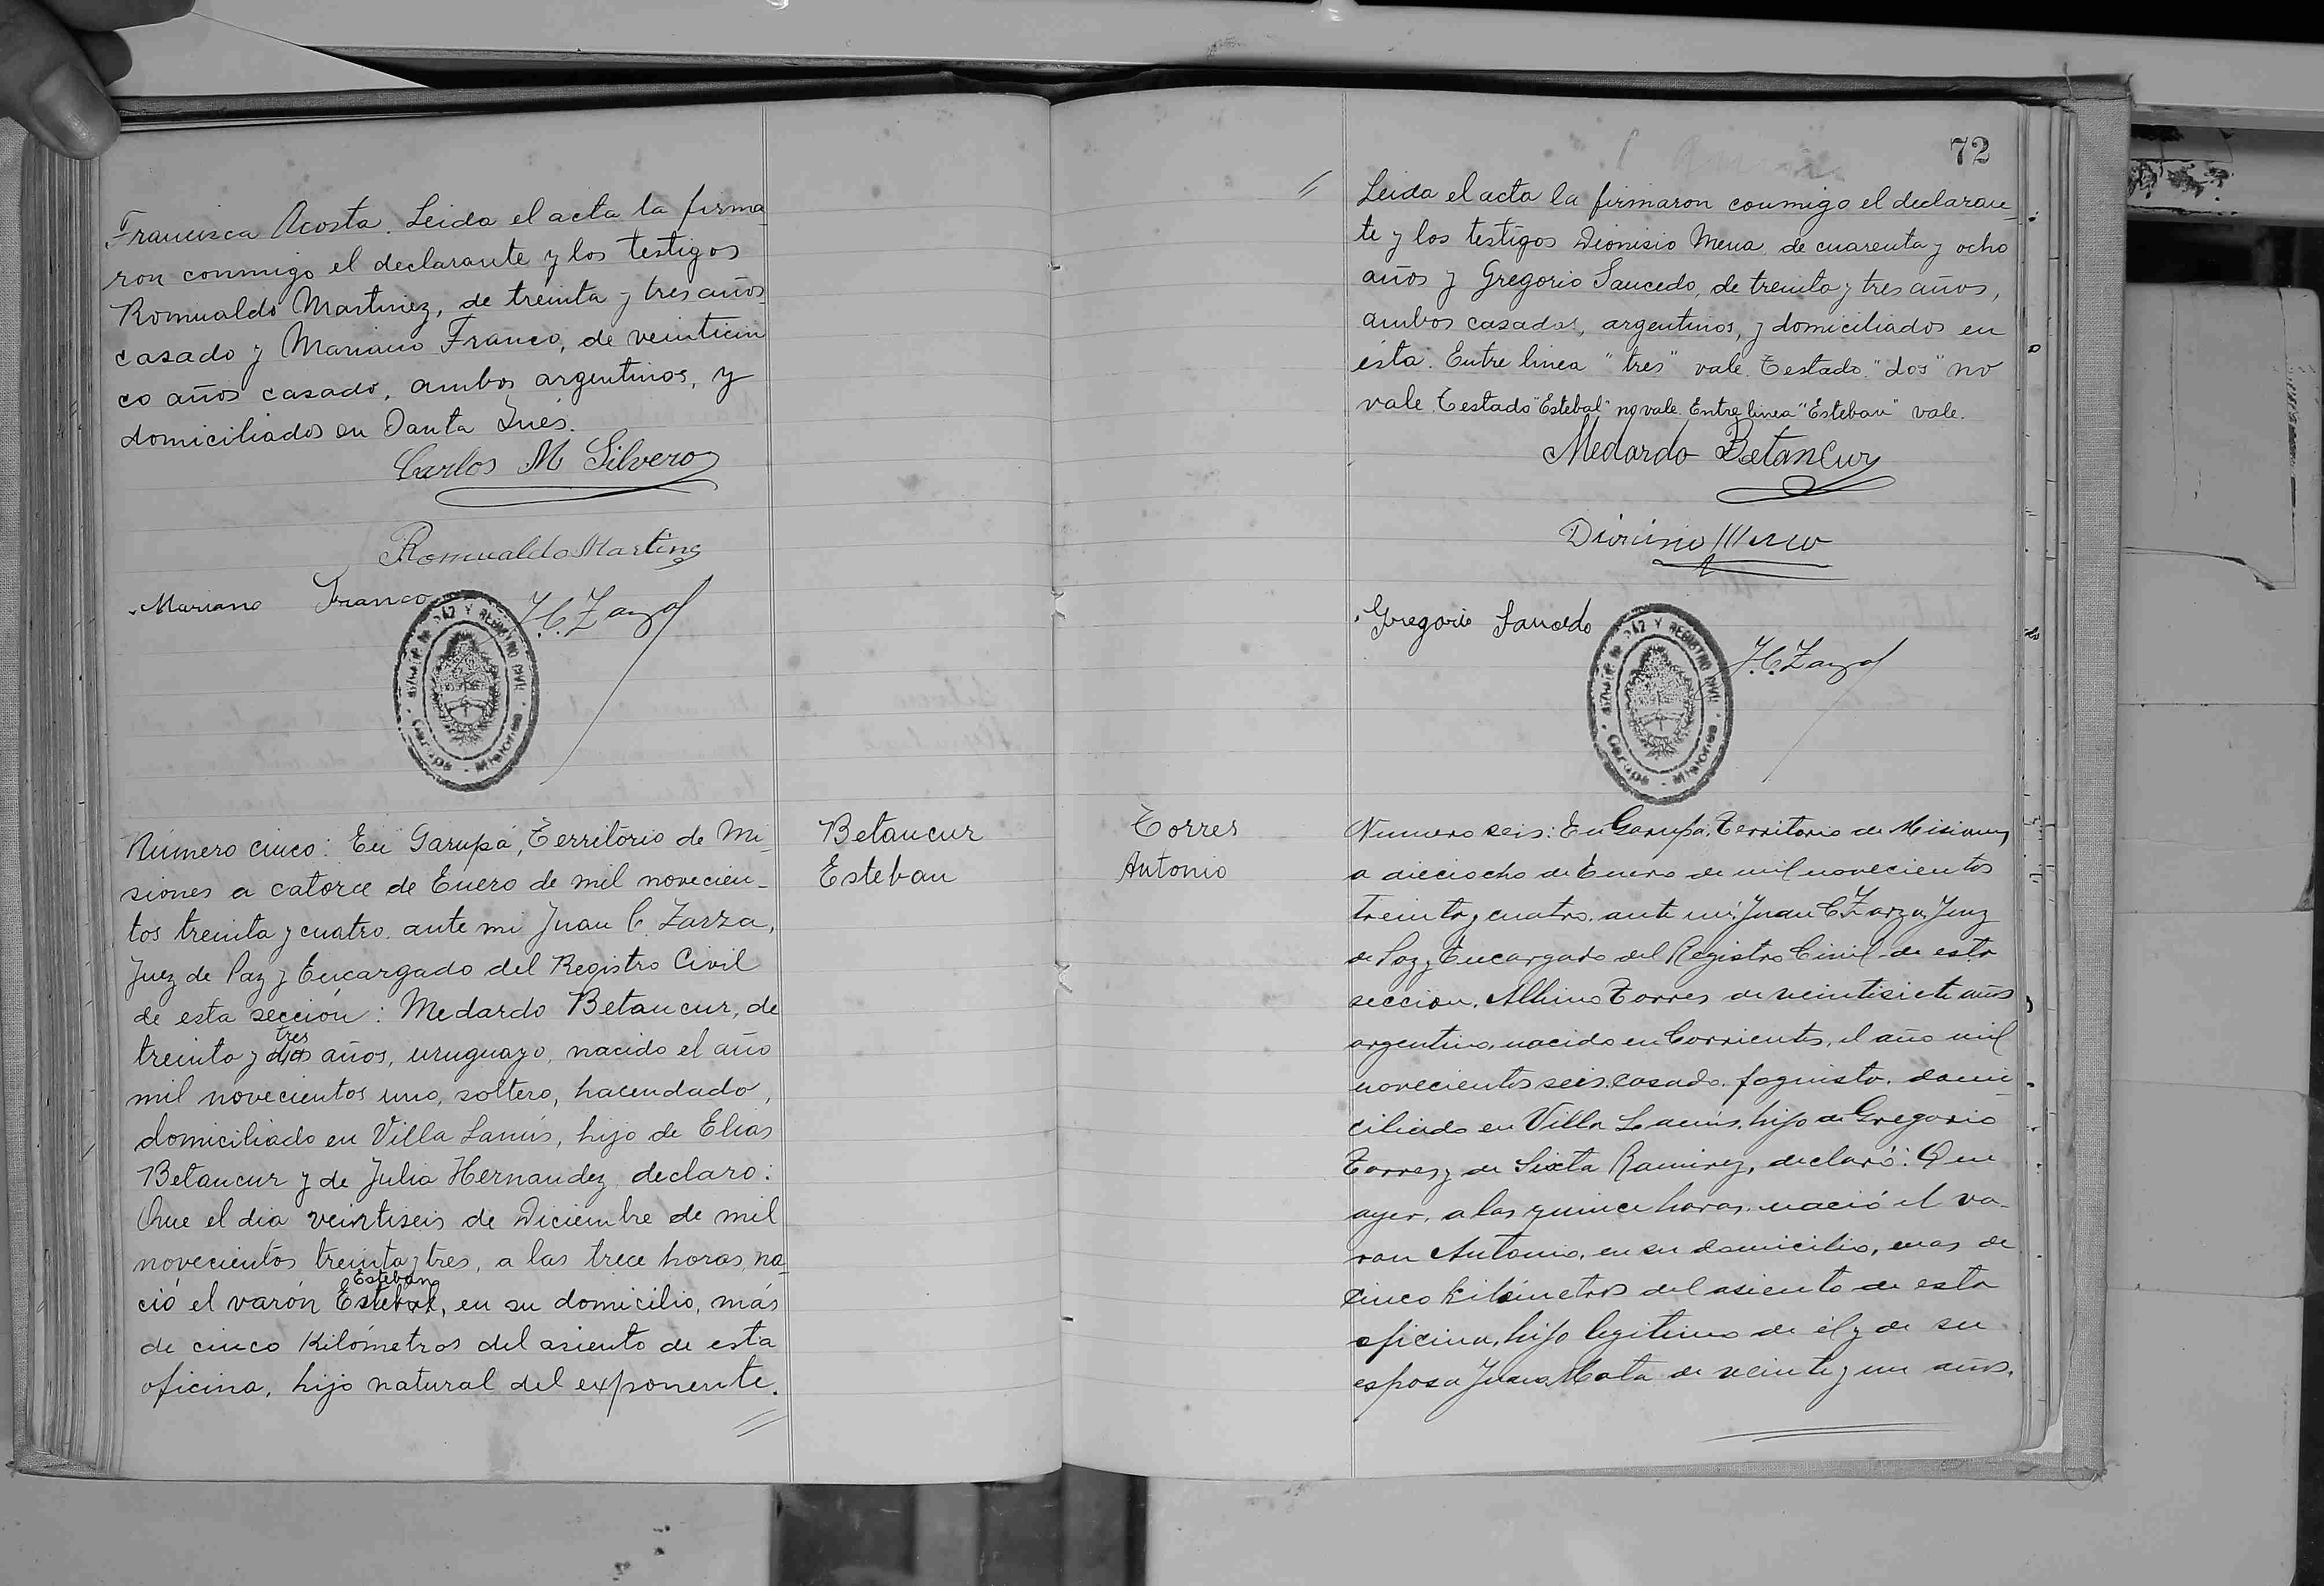 Francisca Acosta. Leida el acta la firma
ron conmigo el declarante y los testigos
Romualdo Martinez, de treinta y tres años
casado y Mariano Franco, de veinticin
co años casado, ambos argentinos, y
domiciliados en Santa Inés.
Carlos M Silvero
Romualdo Martinez
Mariano Franco
J.C. Zarza
PAZ Y REGISTRO CIVIL
Garupa - Misiones
Número cinco: En Garupá, Territorio de Mi_
siones a catorce de Enero de mil novecien_
tos treinta y cuatro. ante mi Juan C. Zarza,
Juez de Paz y Encargado del Registro Civil
de esta sección: Medardo Betancur, de
tres
treinta y dos años, uruguayo, nacido el año
mil novecientos uno, soltero, hacendado,
domiciliado en Villa Lanús, hijo de Elias
Betancur y de Julia Hernandez declaro:
Que el dia veintiseis de Diciembre de mil
novecientos treinta y tres, a las trece horas, na_
Esteban
ció el varón Estebal, en su domicilio, más
de cinco Kilómetros del asiento de esta
oficina, hijo natural del exponente.
Betancur
Esteban
72
Leida el acta la firmaron conmigo el declaran_
te y los testigos Dionisio Mena, de cuarenta y ocho
años y Gregorio Saucedo, de treinta y tres años,
ambos casados, argentinos, y domiciliados en
ésta. Entre linea "tres" vale. Testado "dos" no
vale Testado "Estebal" no vale. Entre linea "Esteban" vale.
Medardo Betancur
Dionisio Mena
Gregorio Saucedo
J.C. Zarza
PAZ Y REGISTRO CIVIL
Garupa - Misiones
Torres
Antonio
Numero seis: En Garupá, Territorio de Misiones
a dieciocho de Enero de mil novecientos
treinta y cuatro. ante mi Juan C Zarza, Juez
de Paz y Encargado del Registro Civil de esta
sección. Albino Torres de veintisiete años
argentino, nacido en Corrientes, el año mil
novecientos seis, casado, foguista, domi_
ciliado en Villa Lanús, hijo de Gregorio
Torres y de Sixta Ramirez, declaró: Que
ayer, a las quince horas, nació el va_
ron Antonio, en su domicilio, mas de
cinco kilómetros del asiento de esta
oficina, hijo legitimo de él y de su
esposa Juana Mota de veinte y un años.